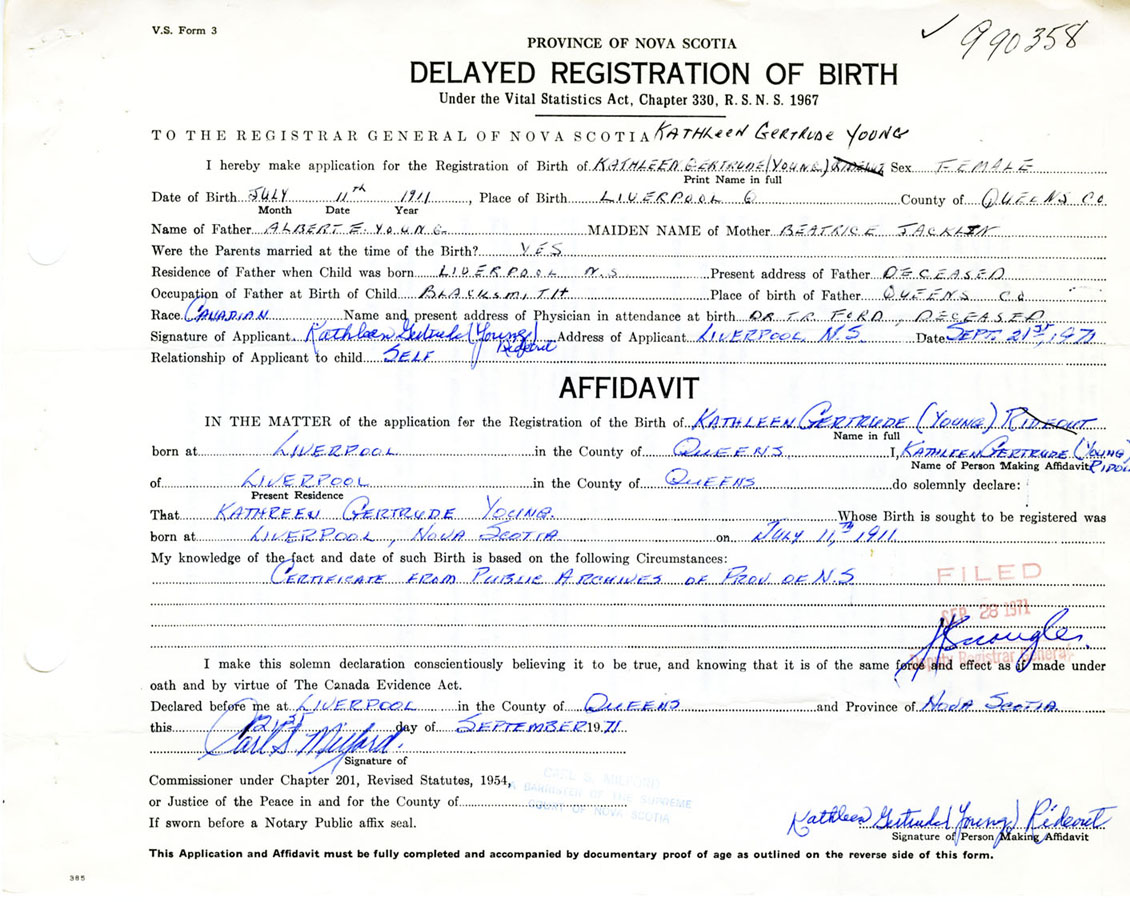 V.S. Form 3
✓ 990358
PROVINCE OF NOVA SCOTIA
DELAYED REGISTRATION OF BIRTH
Under the Vital Statistics Act, Chapter 330, R.S.N.S. 1967
TO THE REGISTRAR GENERAL OF NOVA SCOTIA KATHLEEN GERTRUDE YOUNG
I hereby make application for the Registration of Birth of KATHLEEN GERTRUDE (YOUNG) RIDEOUT Sex FEMALE
Print Name in full
Date of Birth JULY 11th 1911, Place of Birth LIVERPOOL County of QUEENS CO
Month Date Year
Name of Father ALBERT E. YOUNG. MAIDEN NAME of Mother BEATRICE JACKLIN
Were the Parents married at the time of the Birth? YES
Residence of Father when Child was born LIVERPOOL N.S Present address of Father DECEASED
Occupation of Father at Birth of Child BLACKSMITH Place of birth of Father QUEENS CO
Race CANADIAN Name and present address of Physician in attendance at birth DR T.R. FORD, DECEASED
Signature of Applicant Kathleen Gertrude (Young) Rideout Address of Applicant LIVERPOOL N.S. Date SEPT. 21ST, 1971
Relationship of Applicant to child SELF
AFFIDAVIT
IN THE MATTER of the application for the Registration of the Birth of KATHLEEN GERTRUDE (YOUNG) RIDEOUT
Name in full
born at LIVERPOOL in the County of QUEENS I, KATHLEEN GERTRUDE (YOUNG)
Name of Person Making Affidavit
of LIVERPOOL in the County of QUEENS do solemnly declare:
Present Residence
That KATHREEN GERTRUDE YOUNG. Whose Birth is sought to be registered was
born at LIVERPOOL, NOVA SCOTIA on JULY 11,TH 1911
My knowledge of the fact and date of such Birth is based on the following Circumstances:
CERTIFICATE FROM PUBLIC ARCHIVES OF PROV OF N.S
FILED
SEP 28 1971
Deputy Registrar General
I make this solemn declaration conscientiously believing it to be true, and knowing that it is of the same force and effect as if made under
oath and by virtue of The Canada Evidence Act.
Declared before me at LIVERPOOL in the County of QUEENS and Province of NOVA SCOTIA
this 21ST day of SEPTEMBER 1971
Carl S. Milford.
Signature of
Commissioner under Chapter 201, Revised Statutes, 1954,
or Justice of the Peace in and for the County of
If sworn before a Notary Public affix seal.
CARL S. MILFORD
A BARRISTER OF THE SUPREME
COURT OF NOVA SCOTIA
Kathleen Gertrude (Young) Rideout
Signature of Person Making Affidavit
This Application and Affidavit must be fully completed and accompanied by documentary proof of age as outlined on the reverse side of this form.
385